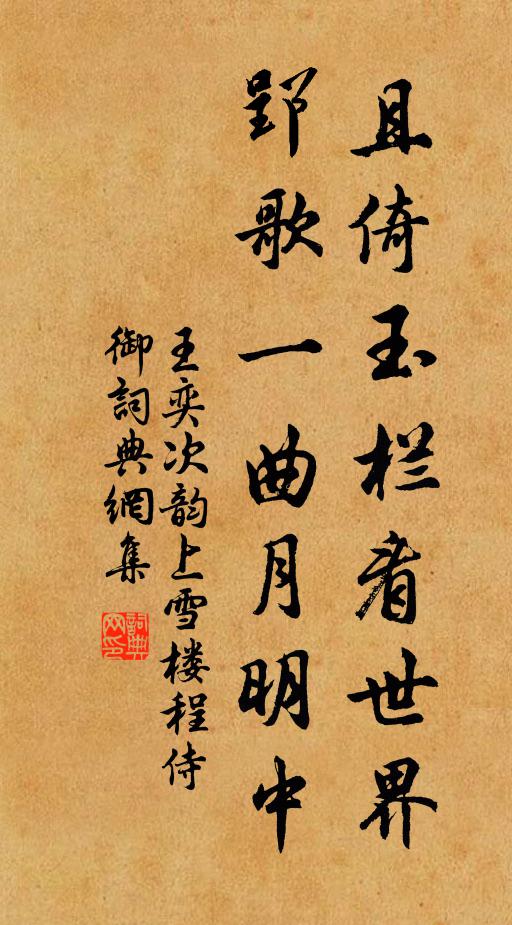 且倚玉栏看世界
郢歌一曲月明中
王奕次韵上雪楼程侍
御詞典網集
詞典
网印